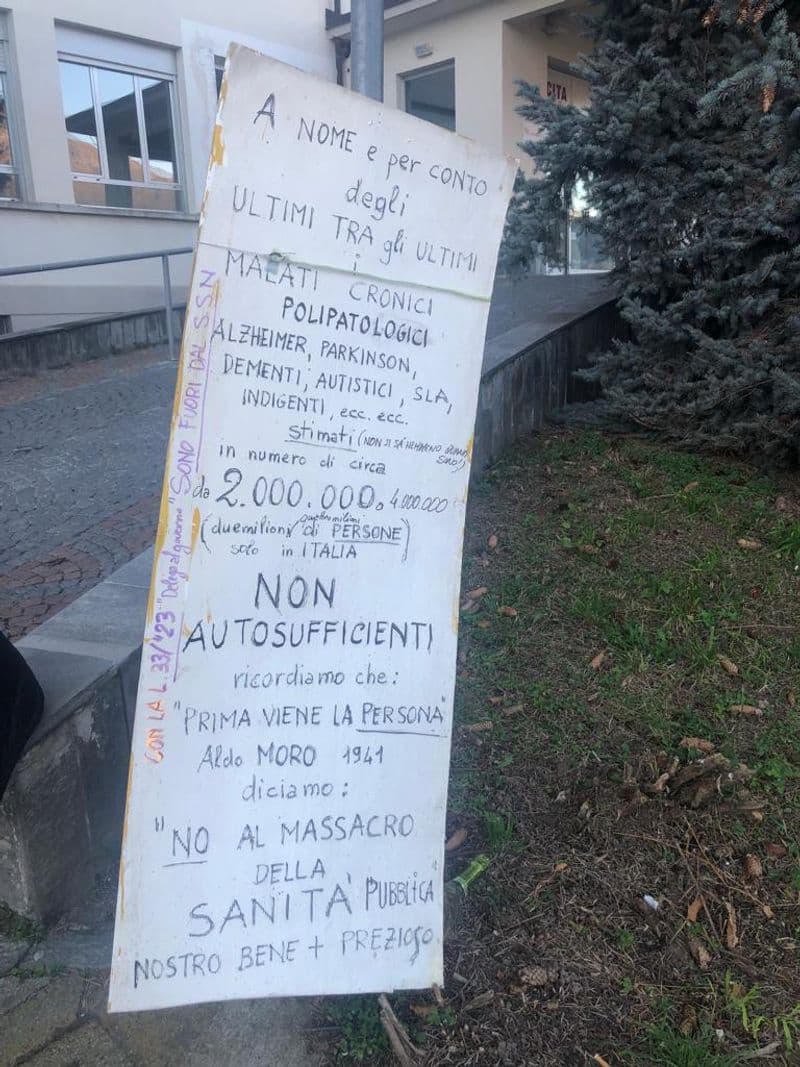 CITA
A NOME e per CONTO
degli
ULTIMI TRA gli ULTIMI
i
MALATI CRONICI
POLIPATOLOGICI
ALZHEIMER, PARKINSON,
DEMENTI, AUTISTICI, SLA,
INDIGENTI, ecc. ecc.
stimati (NON SI SÀ NEMMENO QUANTI
SONO!)
in numero di circa
da 2.000.000. 4.000.000
quattro milioni
(duemilioni di PERSONE)
solo in ITALIA
NON
AUTOSUFFICIENTI
ricordiamo che:
"PRIMA VIENE LA PERSONA"
Aldo MORO 1941
diciamo:
"NO AL MASSACRO
DELLA
SANITA' PUBBLICA"
NOSTRO BENE + PREZIOSO
CON LA L. 33/'23 "Delega al governo" SONO FUORI DAL S.S.N